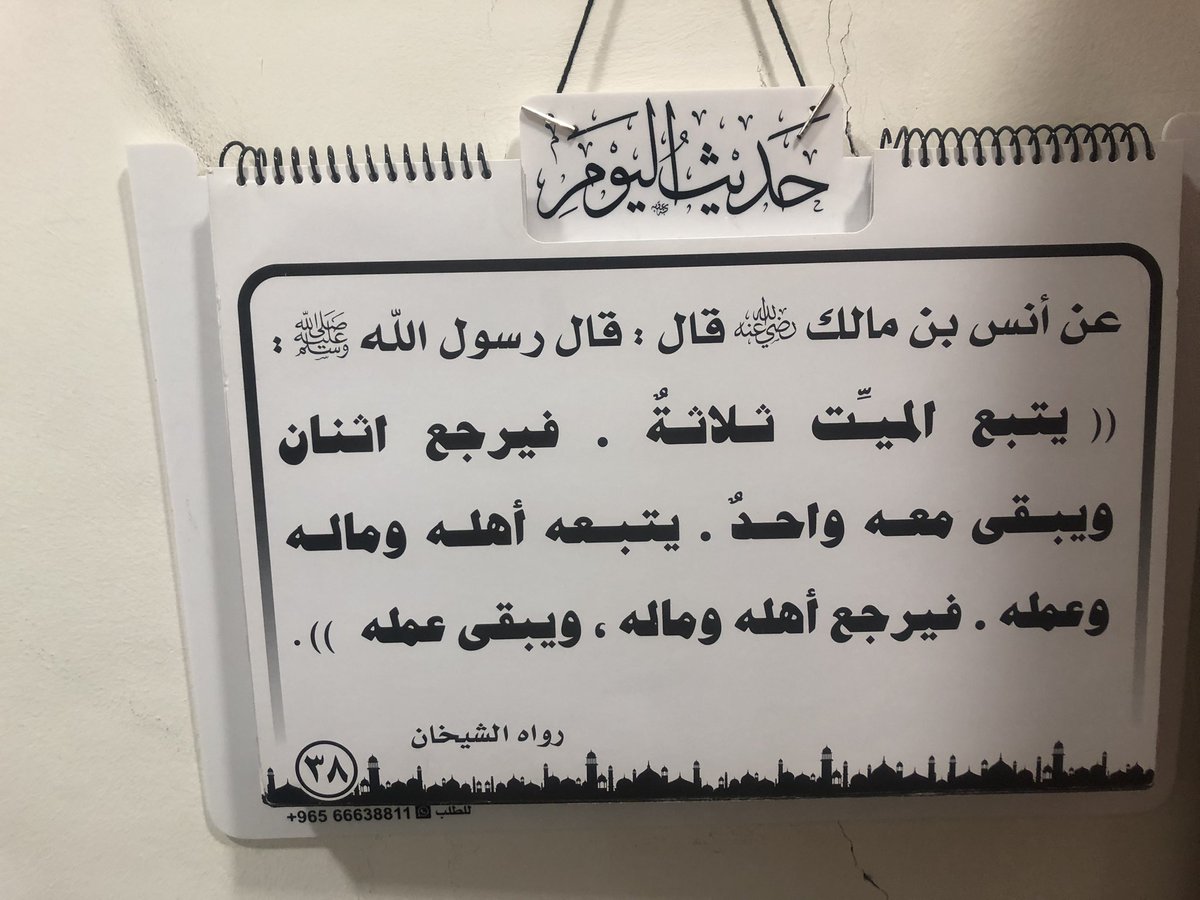 حديث اليوم
عن أنس بن مالك رضي الله عنه قال : قال رسول الله ﷺ :
(( يتبع الميِّت ثلاثةٌ . فيرجع اثنان
ويبقى معه واحدٌ . يتبعه أهله وماله
وعمله . فيرجع أهله وماله ، ويبقى عمله )).
رواه الشيخان
٣٨
للطلب +965 66638811